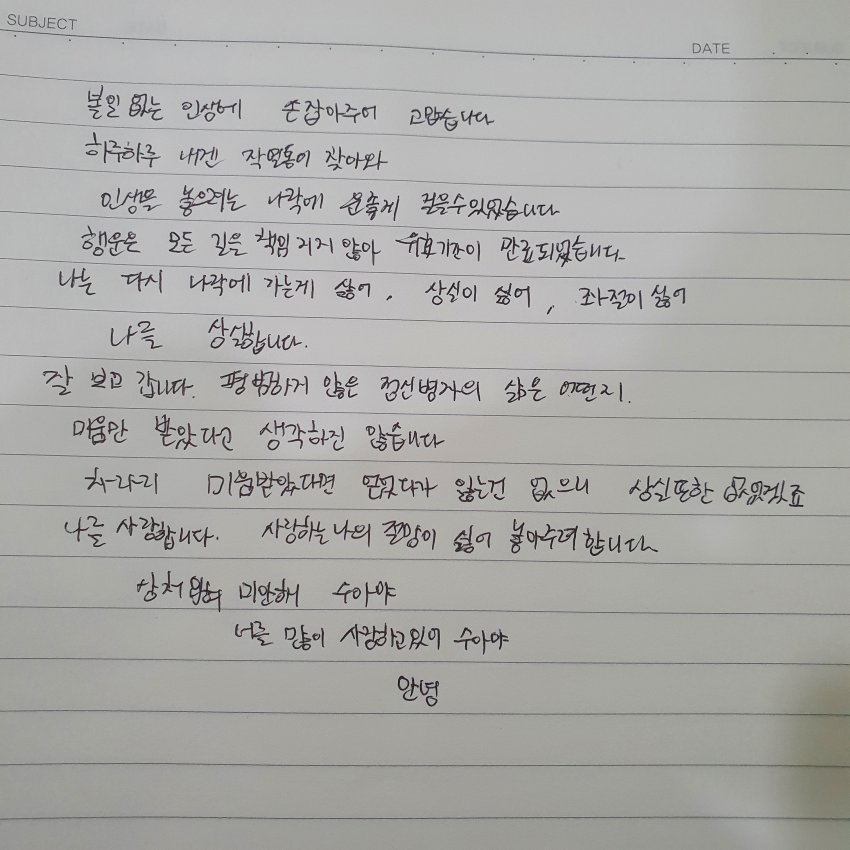 SUBJECT
DATE
볼일 없는 인상에 손잡아주어 고맙습니다
하루하루 내겐 작별통이 찾아와
인생을 놓으려는 나락에 운좋게 걸을수있었습니다
행운은 모든 길을 책임 지지 않아 유효기간이 만료되었습니다.
나는 다시 나락에 가는게 싫어, 상실이 싫어, 좌절이 싫어
나를 상실합니다.
잘 보고 갑니다. 평범하게 않은 정신병자의 삶은 어떤지.
미움만 받았다고 생각하진 않습니다
차라리 미움받았다면 얻었다가 잃는건 없으니 상실또한 없었겠죠
나를 사랑합니다. 사랑하는 나의 절망이 싫어 놓아주려합니다.
상처입혀 미안해 수아야
너를 많이 사랑하고있어 수아야
안녕